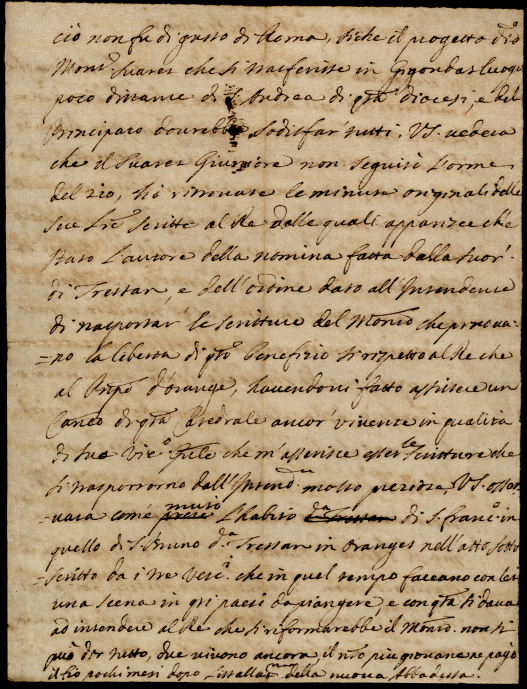 ciò non fu di gusto di Roma, siche il progetto di
Mons.r Suares che si trasferisse in Gigondas luogo
poco distante di S. Andrea di q.ta diocesi, e del
Principato dourebbe sodisfar tutti. VS. uederà
che il Suares Giuniore non seguisì l'orme
del zio, hò ritrouate le minute originali delle
sue lre scritte al Re dalle quali apparisce ch'è
stato l'autore della nomina fatta dalla Suor
di Tressan, e dell'ordine dato all'Intendente
di trasportar le scritture del Mon.ro che prouaua-
=no la libertà di q.to Benefizio si rispetto al Re che
al Prpe d'orange, hauendoui fatto assistere un
Can.co di q.ta Catedrale ancor uiuente in qualità
di suo Vic.o g.nle che m'asserisce esser le scritture che
si trasportorno dall'Intend.te molto preziose, VS. osser-
=uarà com'è mutò l'habito di S. Franc.o in
quello di S. Bruno d.a Tressan in oranges nell'atto sotto
=scritto da i tre Vesc.i che in quel tempo faceano con lei
una scena in q.ti paesi da piangere e con q.ta si daua
ad intendere al Re che si riformarebbe il Mon.ro non si
può dir tutto, due uiuono ancora il più giouane ne pagò
il fio pochi mesi dopo l'istallaz.ne della nuoua Abbadessa.